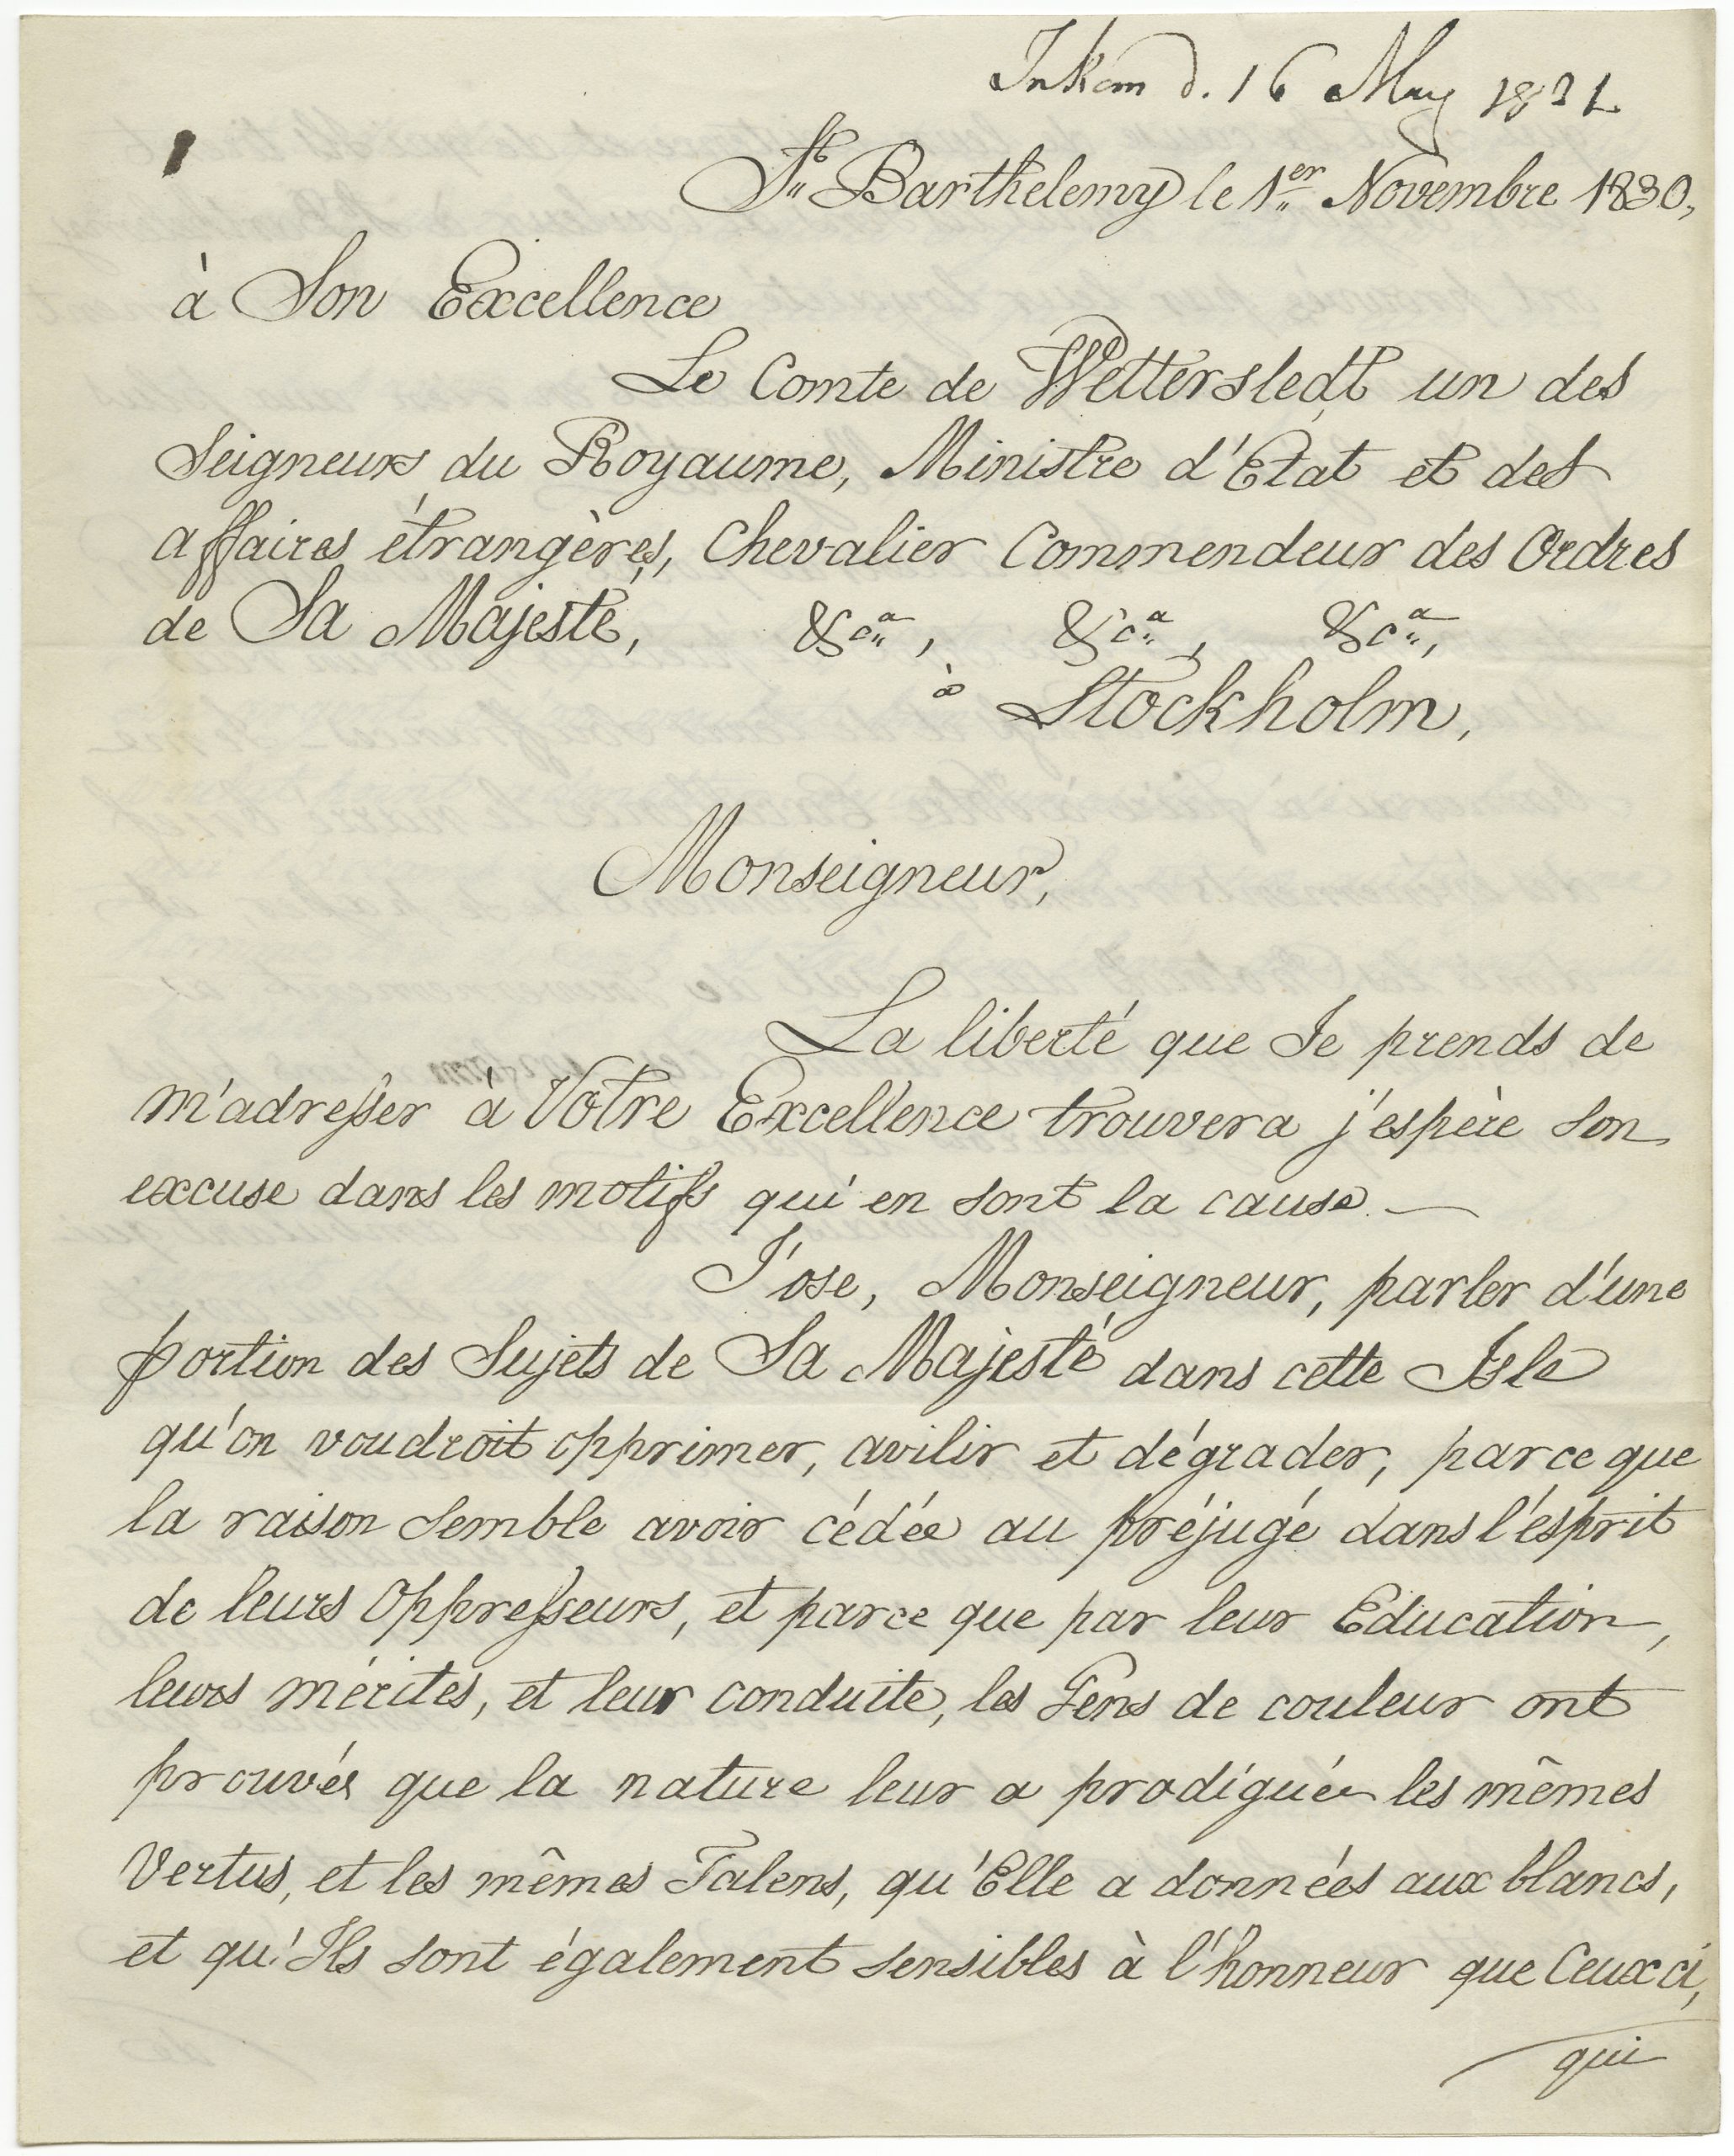 Inkom d. 16 May 1831
St. Barthelemy le 1er Novembre 1830,
à Son Excellence
Le Comte de Wetterstedt un des
Seigneurs du Royaume, Ministre d'Etat et des
affaires étrangères, Chevalier Commendeur des Ordres
de Sa Majesté, &ca, &ca, &ca,
à Stockholm,
Monseigneur,
La liberté que Je prends de
m'adresser à Votre Excellence trouvera j'espère son
excuse dans les motifs qui en sont la cause. —
J'ose, Monseigneur, parler d'une
portion des Sujets de Sa Majesté dans cette Isle
qu'on voudroit opprimer, avilir et dégrader, parce que
la raison semble avoir cédée au préjugé dans l'ésprit
de leurs Oppresseurs, et parce que par leur Education,
leurs mérites, et leur conduite, les Gens de couleur ont
prouvés que la nature leur a prodiguée les mêmes
Vertus, et les mêmes Talens, qu'Elle a données aux blancs,
et qu'Ils sont également sensibles à l'honneur que Ceux ci,
qui